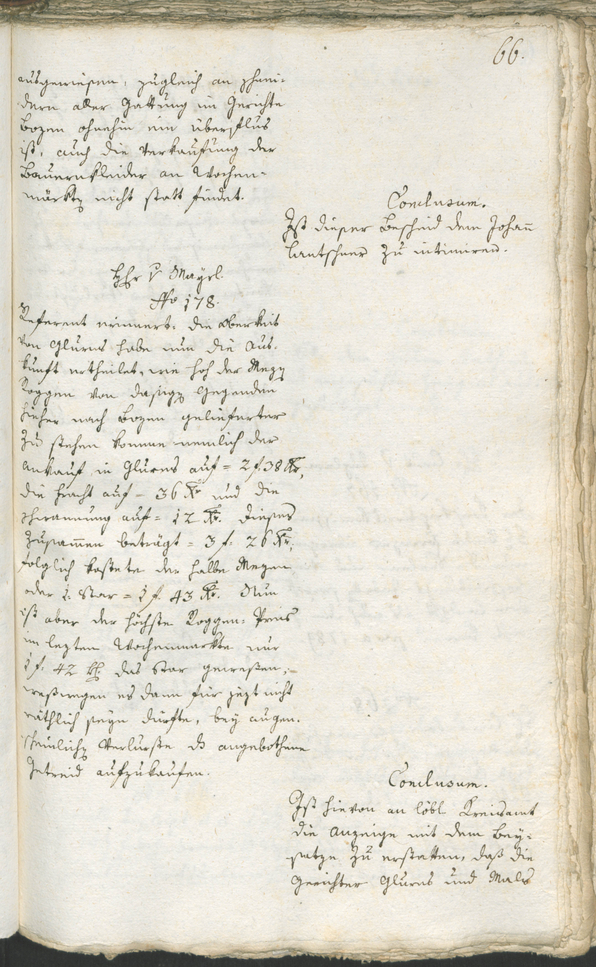 66.
ausgewiesen, zugleich an Schnei-
dern aller Gattung im Gerichte
Bozen ohnehin ein Überfluß
ist, auch die Verkaufung der
Bauernkleider an Wochen-
märkten nicht statt findet.
Conclusum.
Ist dieser Bescheid dem Johann
Lantschner zu intimiren.
Hr v. Mayrl
No 178.
Referent erinnert: die Oberkeit
von Glurns habe nun die Aus-
kunft ertheilet, wie hoch der Mezen
Roggen von dasigen Gegenden
hieher nach Bozen gelieferter
zu stehen komme nemlich der
Ankauf in Glurns auf = 2 f 38 Kr,
die Fracht auf = 36 Kr und die
auf = 12 Kr. Dieses
zusammen beträgt = 3 f. 26 Kr,
folglich kostete der halbe Mezen
oder 1 Star = 1 f 43 Kr. Nun
ist aber der höchste Roggen-Preis
im lezten Wochenmarkte nur
1 f. 42 Kr das Star gewesen,
weßwegen es dann für jezt nicht
räthlich seyn dürfte, bey augen-
scheinlichen Verlurste das angebothene
Getreid aufzukaufen.
Conclusum.
Ist hievon an löbl Kreisamt
die Anzeige mit dem Bey-
satze zu erstatten, daß die
Gerichter Glurns und Mals